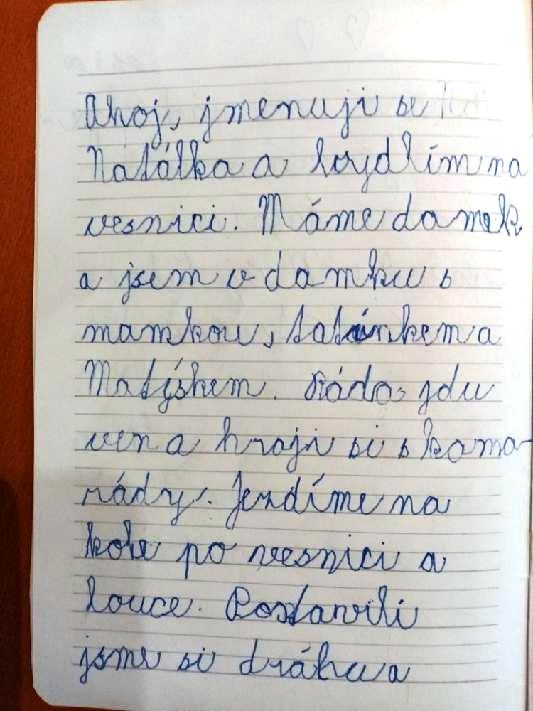 Ahoj, jmenuji se
Natálka a bydlím na
vesnici. Máme domek
a jsem v domku s
mamkou, tatínkem a
Matýskem. Ráda jdu
ven a hraji si s kama-
rády. Jezdíme na
kole po vesnici a
louce. Postavili
jsme si dráhu a